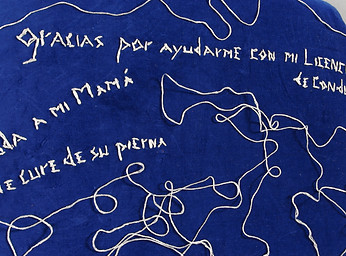 gracias por ayudarme con mi Licenci
de Condu
da a mi Mamá
e cure de su pierna